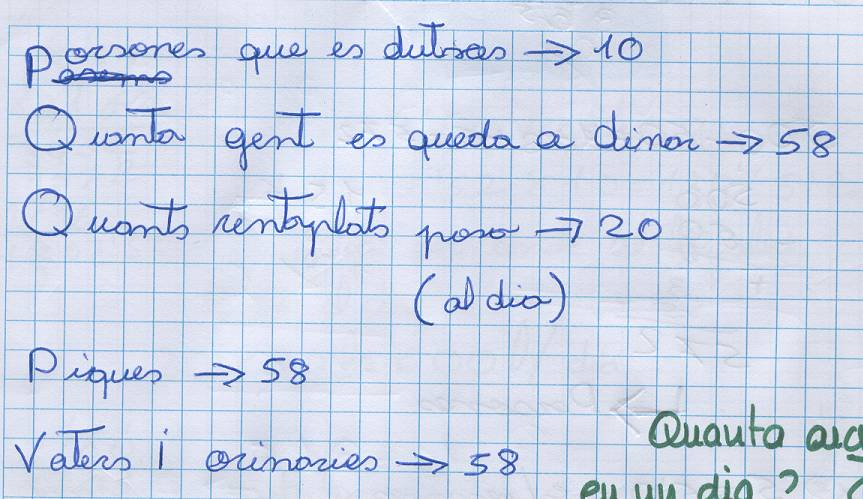 Persones que es dutxes → 10
Quanta gent es queda a dinar → 58
Quants rentaplats poso → 20
(al dia)
Piques → 58
Vàters i orinaries → 58
Quanta aig
en un dia?